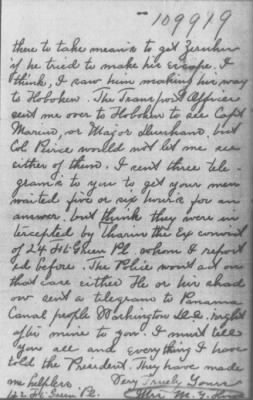 109919
there to take means to get Zernher
if he tried to make his escape. I
think, I saw him making his way
to Hoboken. The Transport Officer
sent me over to Hoboken to see Capt
Marino, or Major Dunham, but
Col Bierce would not let me see
either of them. I sent three tele-
grams to you to get your men
waited five or six hours for an
answer. but think they were in
tercepted by Tharin the Ex convict
of 24 Ft Green Pl. whom I report
ed before. The Police wont act on
that case either He or his shad
ow sent a telegram to Panama
Canal people Washington D.C. right
after mine to you. I must tell
you all and everything I have
told the President. They have made
me helpless. Very Truely Yours
Ft Green Pl. Mrs. M. Y.